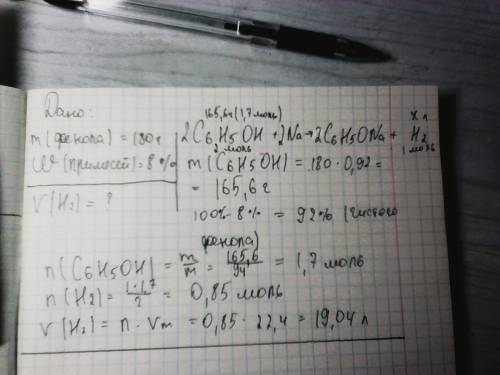 Дано:
m (фенола) = 180 г
W (примесей) = 8 %
V (H2) = ?
165,6 г (1,7 моль) x л
2C6H5OH + 2Na → 2C6H5ONa + H2
2 моль 1 моль
m (C6H5OH) = 180 · 0,92 =
= 165,6 г
100% - 8% = 92% (чистого
фенола)
n (C6H5OH) = m/m = 165,6/94 = 1,7 моль
n (H2) = 1·1,7/2 = 0,85 моль
V (H2) = n · Vm = 0,85 · 22,4 = 19,04 л